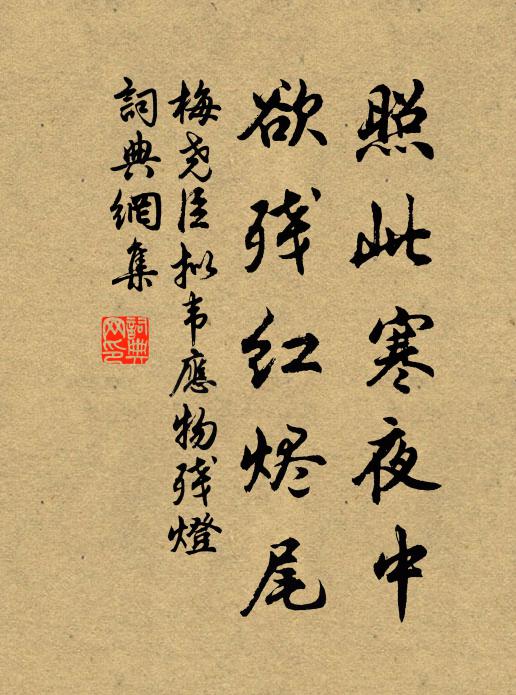 照此寒夜中
欲残红烬尾
梅尧臣拟韦應物残燈
詞典網集
詞典
网印